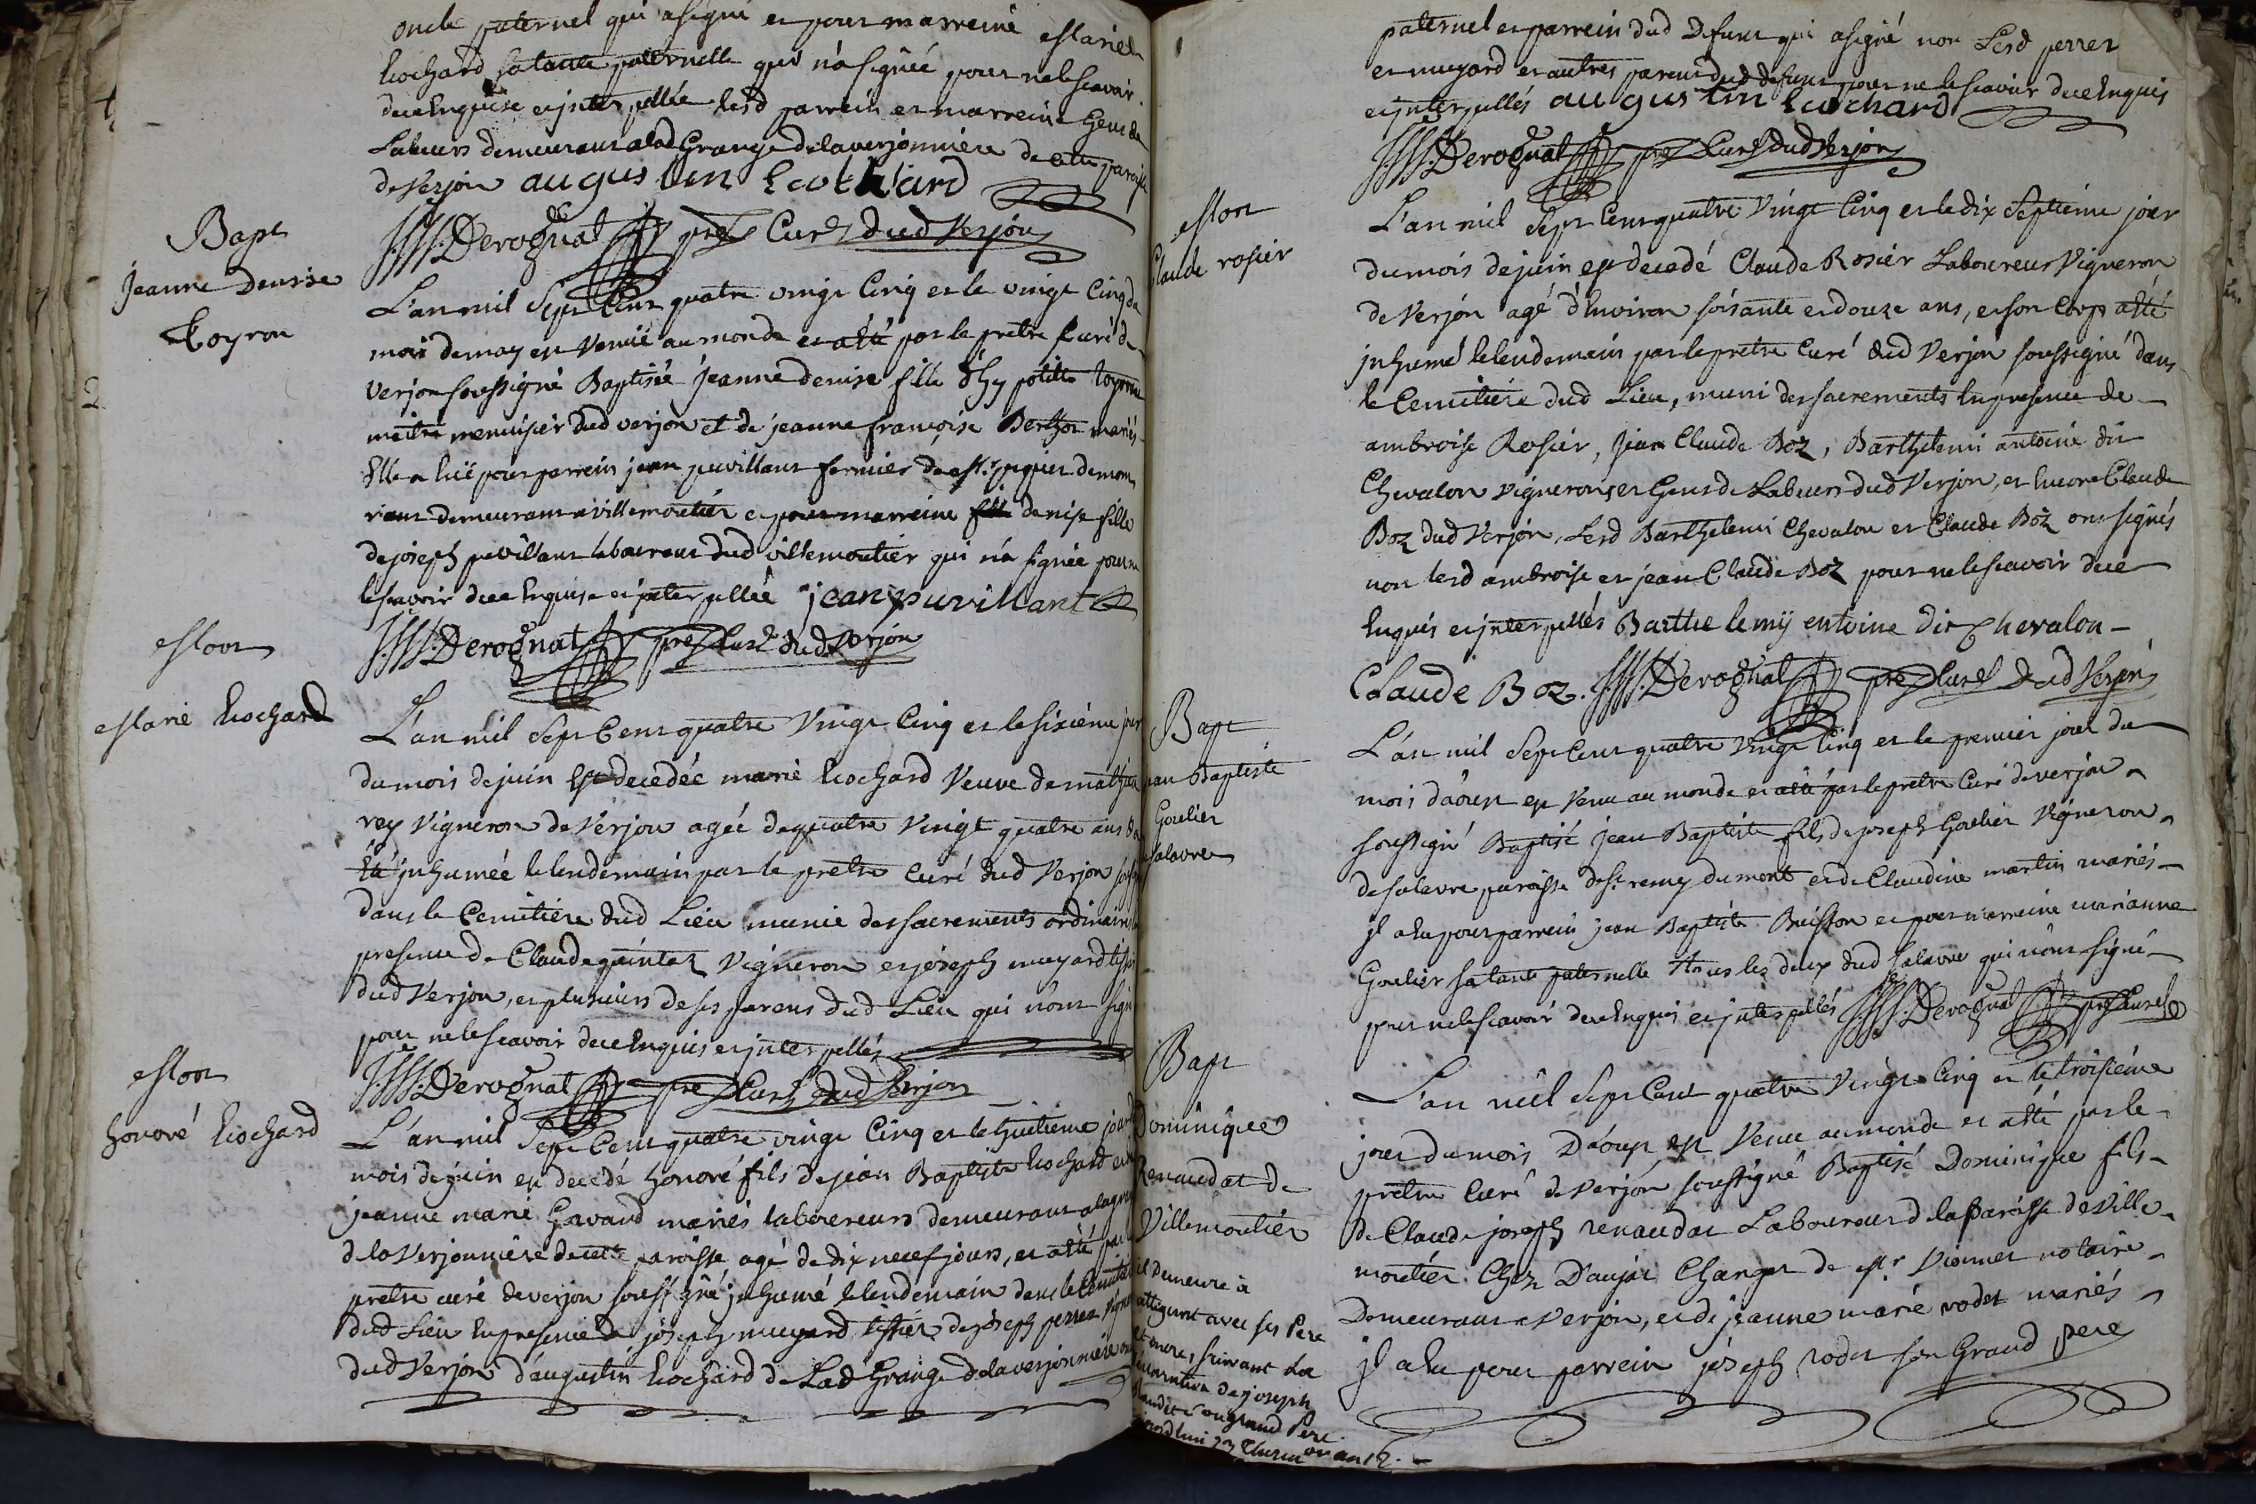 oncle paternel qui a signé et pour marreine Marie
Cochard sa tante paternelle qui n'a signée pour ne le scavoir
dece enquise et interpellée lesd parrein et marreine gens de
Labeurs demeurant a lad Grange de la verjonniere de cette paroisse
de Verjon augustin Cochard
J.M. Derognat pre Curé dud Verjon
Bapt
Jeanne Denise
Loyron
L'an mil Sept Cent quatre vingt Cinq et le vingt Cinq du
mois de may est Venüe au monde et a été par le pretre Curé de
Verjon soussigné Baptisée Jeanne denise fille d'hypolitte
maitre menuisier dud verjon et de jeanne françoise Berthot mariés
Elle a hüe pour parrein jean puvillant fermier de Mr
demeurant a villemoutier et pour marreine denise fille
de joseph puvillant laboureur dud villemoutier qui n'a signée pour ne
le scavoir dece Enquise et interpellée jean puvillant
J.M. Derognat pre Curé dud Verjon
Mort
Marie Cochard
L'an mil Sept Cent quatre Vingt Cinq et le sixiéme jour
du mois de juin Est decedée marie Cochard Veuve de mathieu
rey Vigneron de Verjon agée de quatre Vingt quatre ans
Eté inhumée le lendemain par le pretre Curé dud Verjon
dans le Cemitiere dud Lieu munie des sacrements ordinaires
presence de Claude quintaz Vigneron et joseph muyard
dud Verjon, et plusieurs de ses parens dud Lieu qui n'ont signé
pour ne le scavoir dece Enquis et interpellés
J.M. Derognat pre Curé dud Verjon
Mort
honoré Cochard
L'an mil Sept Cent quatre vingt Cinq et le huitieme jour
mois de juin est decedé honoré fils de jean Baptiste Cochard et de
jeanne marie Gavand mariés laboureurs demeurant a la grange
de la Verjonniere de cette paroisse agé de dix neuf jours, et a été par
pretre curé de verjon soussigné inhumé le lendemain dans le Cemitiere
dud Lieu En presence de joseph muyard tissier, de joseph perret vigneron
dud Verjon d'augustin Cochard de Lad Grange de la verjonniere
paternel et parrein dud Defunt qui a signé non Lesd perret
et muyard et autres parens dud defunt pour ne le scavoir dece Enquis
et interpellés augustin Cochard
J.M. Derognat pre Curé dud Verjon
Mort
Claude rosier
L'an mil Sept Cent quatre Vingt Cinq et le dix Septieme jour
du mois de juin est decedé Claude Rosier Laboureur Vigneron
de Verjon agé d'Environ soisante et douze ans, et son Corp a été
inhumé le lendemain par le pretre Curé dud Verjon soussigné dans
le Cemitiere dud Lieu, muni des sacrements En presence de
ambroise Rosier, Jean Claude Boz, Barthelemi antoine dit
Chevalon Vignerons et Gens de Labeurs dud Verjon, et encore Claude
Boz dud Verjon, Lesd Barthelemi Chevalon et Claude Boz ont signés
non lesd ambroise et jean Claude Boz pour ne le scavoir dece
Enquis et interpellés Barthelemÿ entoine dit Chevalon
Claude Boz. J.M. Derognat pre Curé dud Verjon
Bapt
jean Baptiste
Goulier
Salavre
L'an mil Sept Cent quatre Vingt Cinq et le premier jour du
mois d'aoust est Venu au monde et a été par le pretre Curé de verjon
soussigné Baptisé jean Baptiste fils de joseph Goulier Vigneron
de salavre paroisse de St remy du mont et de Claudine martin mariés
il a hu pour parrein jean Baptiste Buisson et pour marreine marianne
Goulier sa tante paternelle tous les deux dud Salavre qui n'ont signé
pour ne le scavoir dece Enquis et interpellés J.M. Derognat pre Curé
Bapt
Dominique
Renaudat de
Villemoutier
il Demeure à
avec ses Pere
et mere, suivant La
de joseph
son grand Pere
L'an mil Sept Cent quatre Vingt Cinq et le troisiéme
jour du mois D'aoust est Venu au monde et a été par le
pretre Curé de Verjon soussigné Baptisé Dominique fils
de Claude joseph renaudat Laboureur de la Paroisse de Ville
moutier Chez Danjat Granger de Mr Vionnet notaire
Demeurant a Verjon, et de jeanne marie rodet mariés
il a hu pour parrein joseph rodet son Grand pere